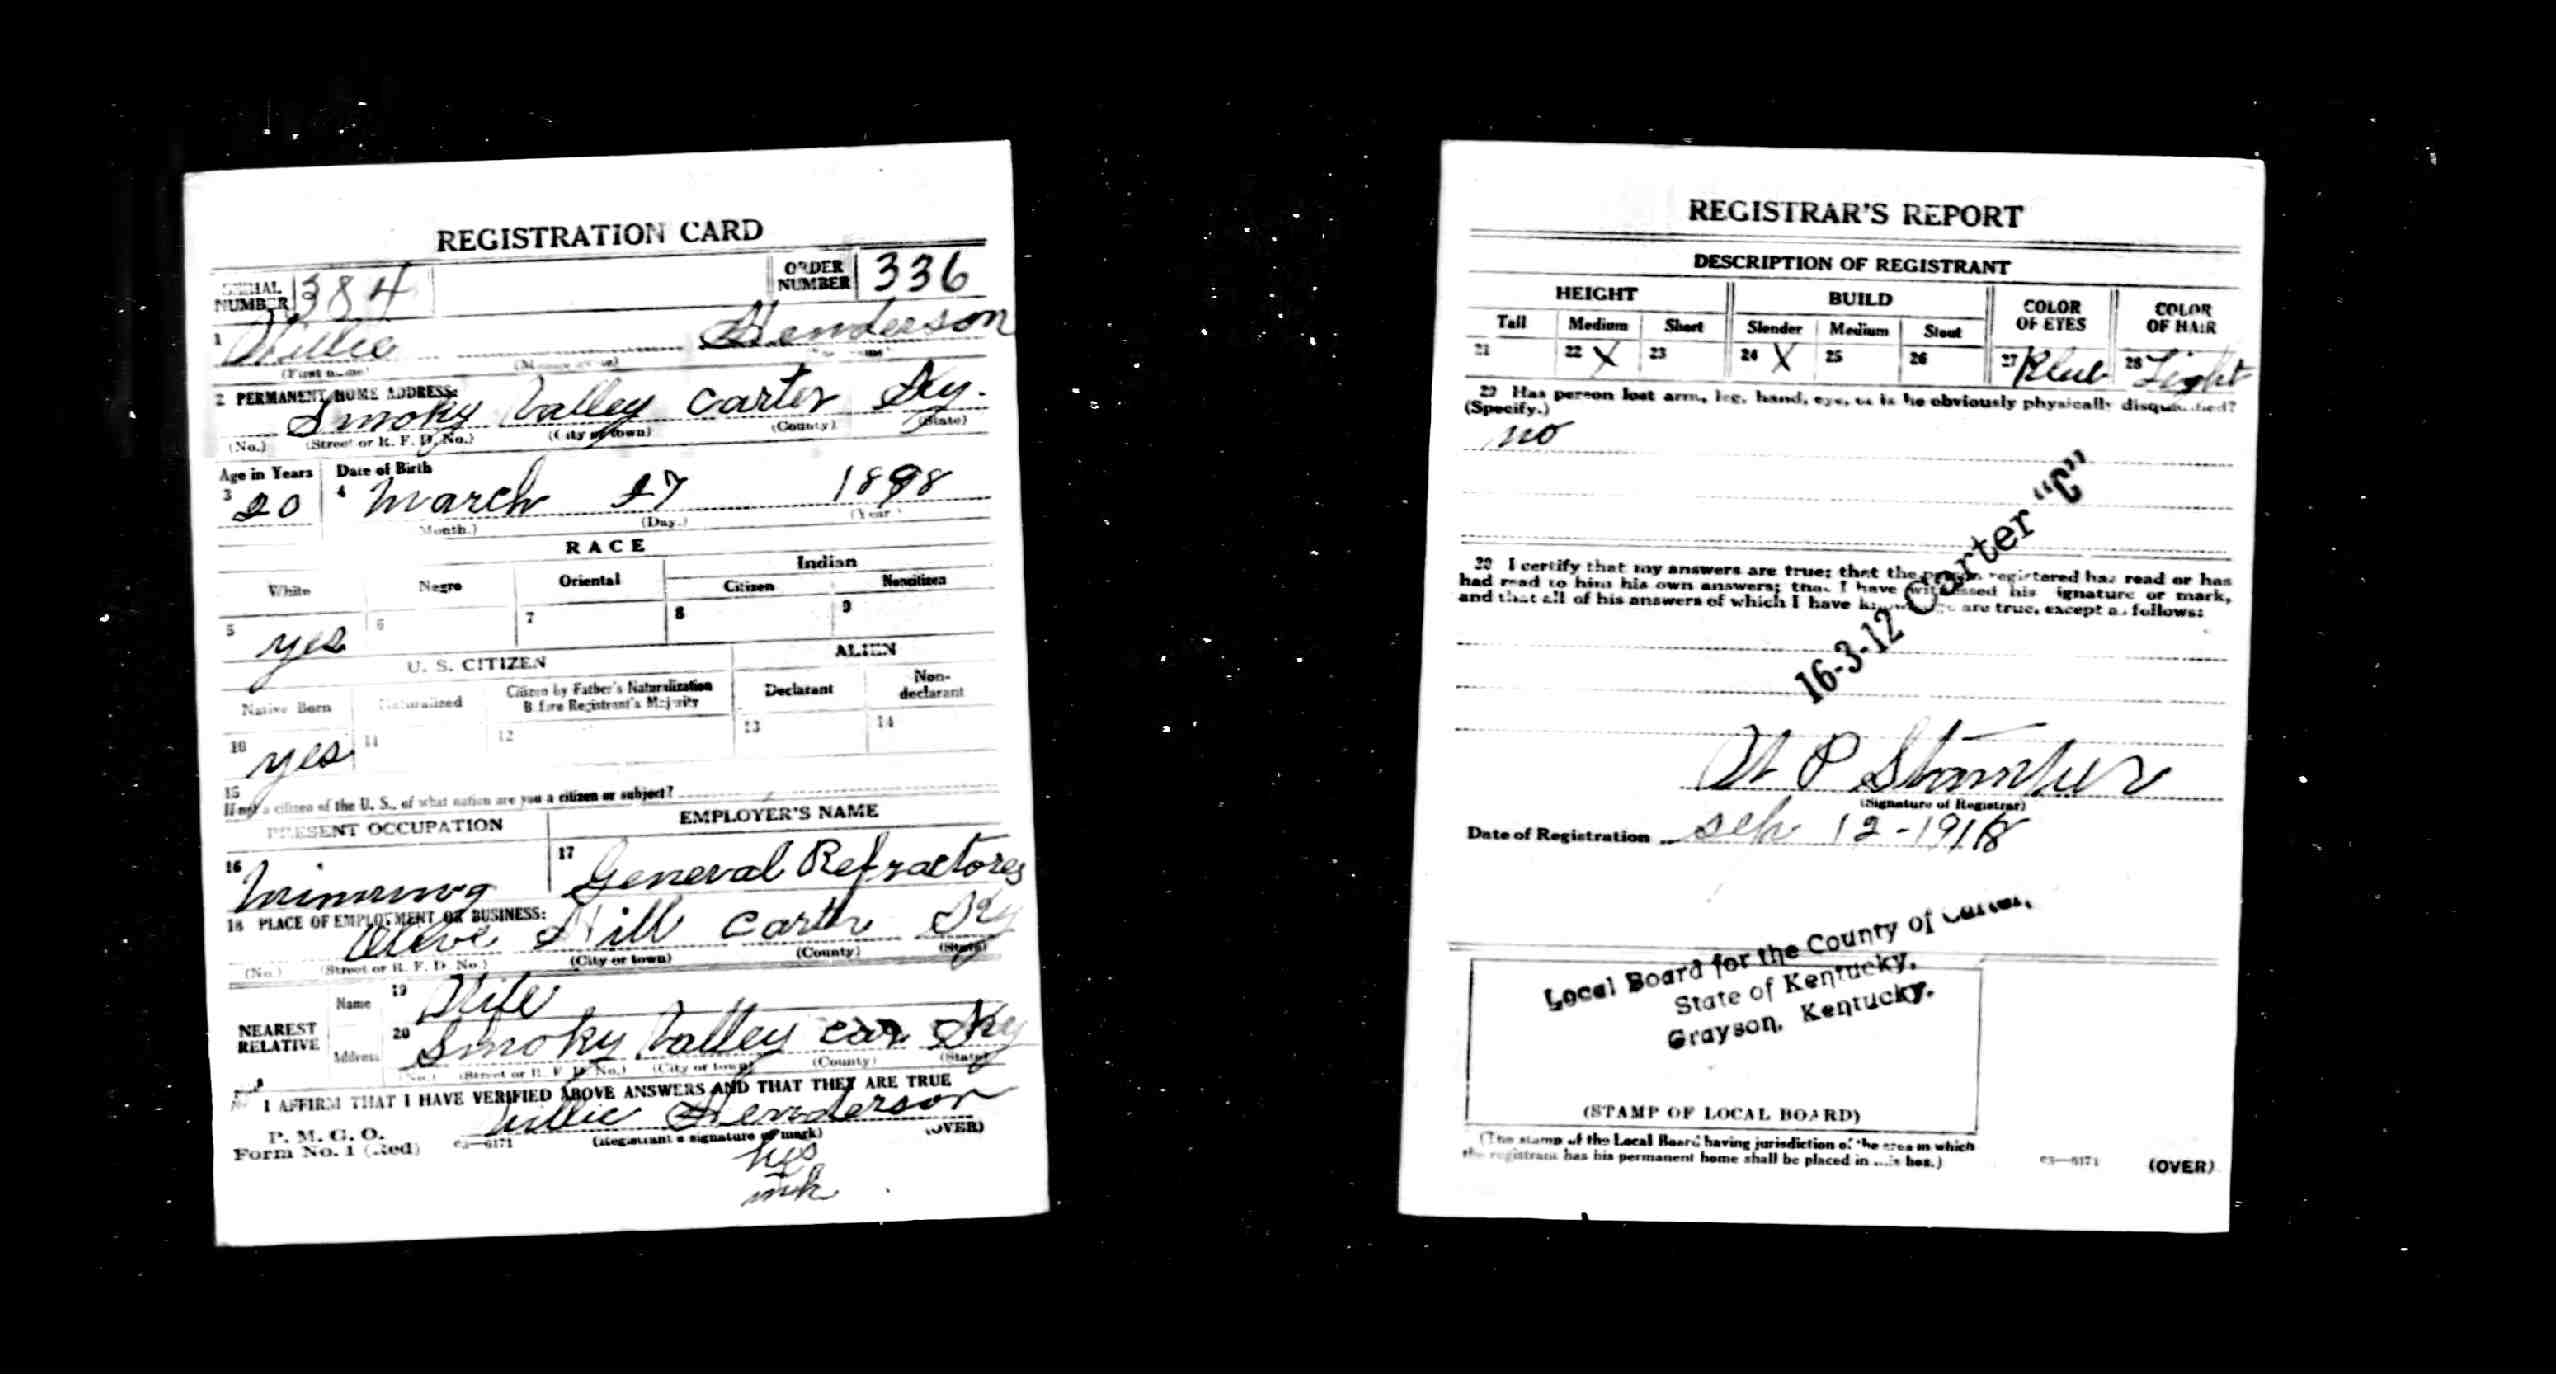 REGISTRATION CARD
SERIAL NUMBER 384 ORDER NUMBER 336
1 Willie Henderson
(First name) (Middle name)
2 PERMANENT HOME ADDRESS:
Smoky Valley Carter Ky.
(No.) (Street or R. F. D. No.) (City or town) (County) (State)
Age in Years Date of Birth
3 20 4 March 27 1898
(Month.) (Day.) (Year.)
RACE
White Negro Oriental Indian
Citizen Noncitizen
5 yes 6 7 8 9
U. S. CITIZEN ALIEN
Native Born Naturalized Citizen by Father's Naturalization Before Registrant's Majority Declarant Non-declarant
10 yes 11 12 13 14
15 If not a citizen of the U. S., of what nation are you a citizen or subject?
PRESENT OCCUPATION EMPLOYER'S NAME
16 17 General Refractores
18 PLACE OF EMPLOYMENT OR BUSINESS:
Olive Hill Carter Ky
(No.) (Street or R. F. D. No.) (City or town) (County) (State)
NEAREST RELATIVE Name 19 Wife
Address 20 Smoky Valley Car Ky
(No.) (Street or R. F. D. No.) (City or town) (County) (State)
I AFFIRM THAT I HAVE VERIFIED ABOVE ANSWERS AND THAT THEY ARE TRUE
Willie Henderson
P. M. G. O.
Form No. 1 (Red) c3—6171 (Registrant's signature or mark) (OVER)
his
mk
REGISTRAR'S REPORT
DESCRIPTION OF REGISTRANT
HEIGHT BUILD COLOR OF EYES COLOR OF HAIR
Tall Medium Short Slender Medium Stout
21 22 X 23 24 X 25 26 27 Blue 28 Light
29 Has person lost arm, leg, hand, eye, or is he obviously physically disqualified?
(Specify.)
no
30 I certify that my answers are true; that the person registered has read or has
had read to him his own answers; that I have witnessed his signature or mark,
and that all of his answers of which I have knowledge are true, except as follows:
16-3-12 Carter "C"
P Stamper
(Signature of Registrar)
Date of Registration Sep 12-1918
Local Board for the County of Carter,
State of Kentucky,
Grayson, Kentucky.
(STAMP OF LOCAL BOARD)
(The stamp of the Local Board having jurisdiction of the area in which
the registrant has his permanent home shall be placed in this box.)
c3—6171 (OVER)